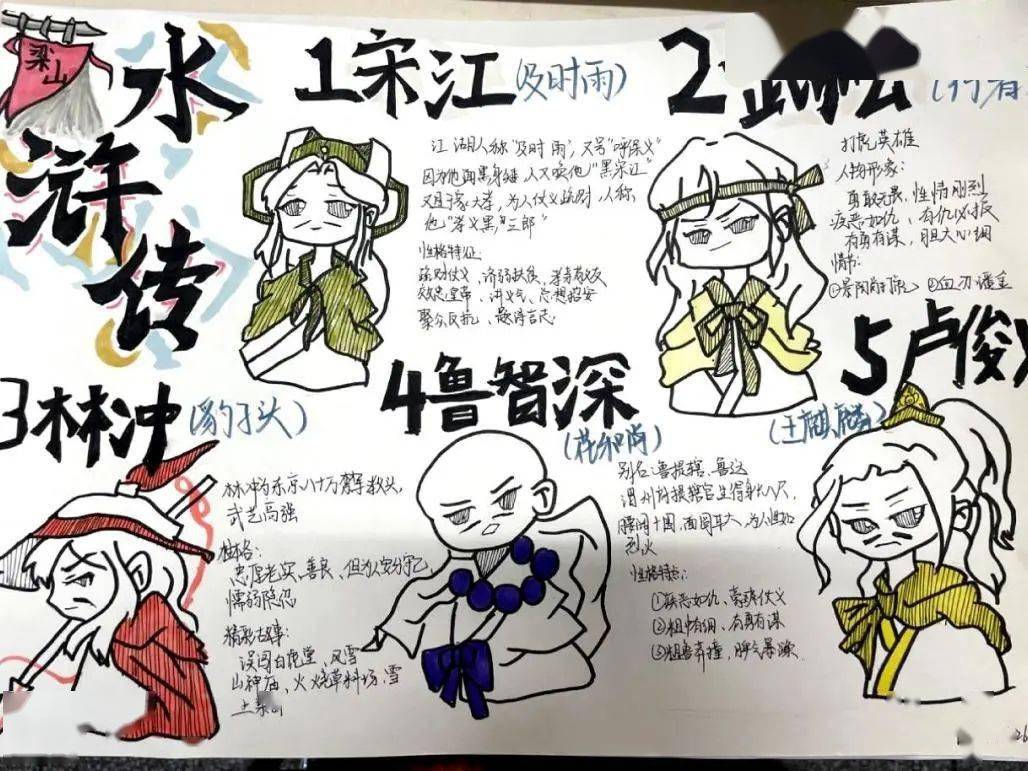 梁山
水浒传
1宋江(及时雨)
江湖人称"及时雨",又号"呼保义"
因为他面黑身矮,人又唤他"黑宋江"
又且于家大孝,为人仗义疏财,人称
他"孝义黑三郎"
性格特征:
疏财仗义、济弱扶贫、孝
效忠皇帝、讲义气、思想招安
聚众反抗、题诗言志
2武松(行者
打虎英雄
人物形象:
勇敢无畏,性情刚烈
疾恶如仇,有仇必报
有勇有谋,胆大心细
情节:
①景阳冈打虎 ②血刃潘金
3林冲(豹子头)
林冲为东京八十万禁军教头,
武艺高强
性格:
忠厚老实、善良、但求安分守己,
懦弱隐忍
精彩故事:
误闯白虎堂、风雪
山神庙、火烧草料场、雪
上梁山
4鲁智深
(花和尚)
别名:鲁提辖、鲁达
渭州府提辖官生得身长八尺,
腰阔十围,面圆耳大,为人性如
烈火
性格特点:
①疾恶如仇、豪爽仗义
②粗中有细、有勇有谋
③粗鲁莽撞,脾气暴躁
5卢俊义
(玉麒麟)